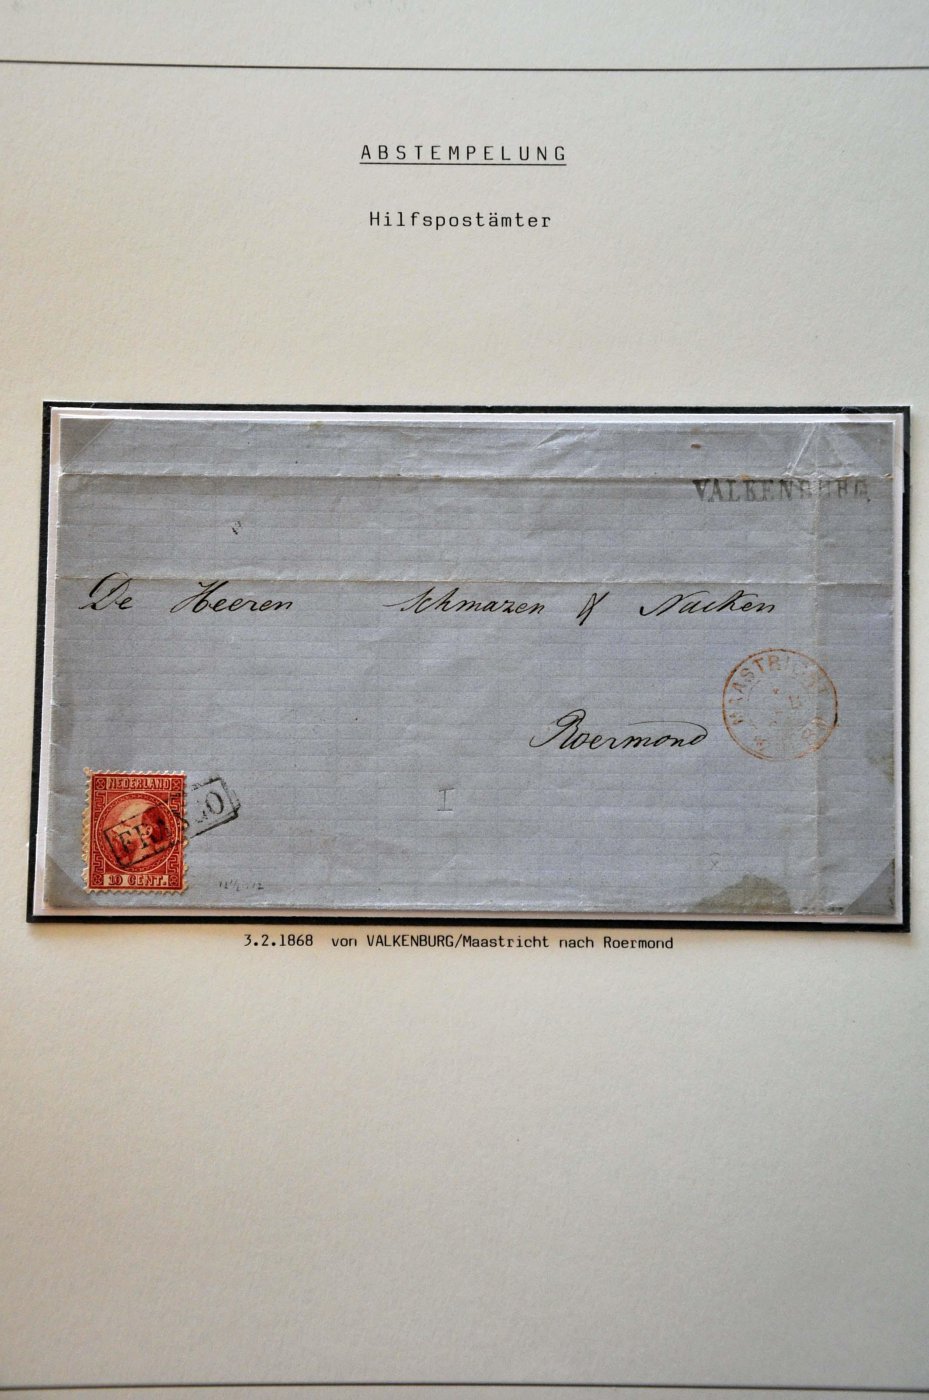 ABSTEMPELUNG
Hilfspostämter
VALKENBURG
De Heeren Schmazen & Nacken
MAASTRICHT
Roermond
I
NEDERLAND
FRANCO
10 CENT.
3.2.1868 von VALKENBURG/Maastricht nach Roermond